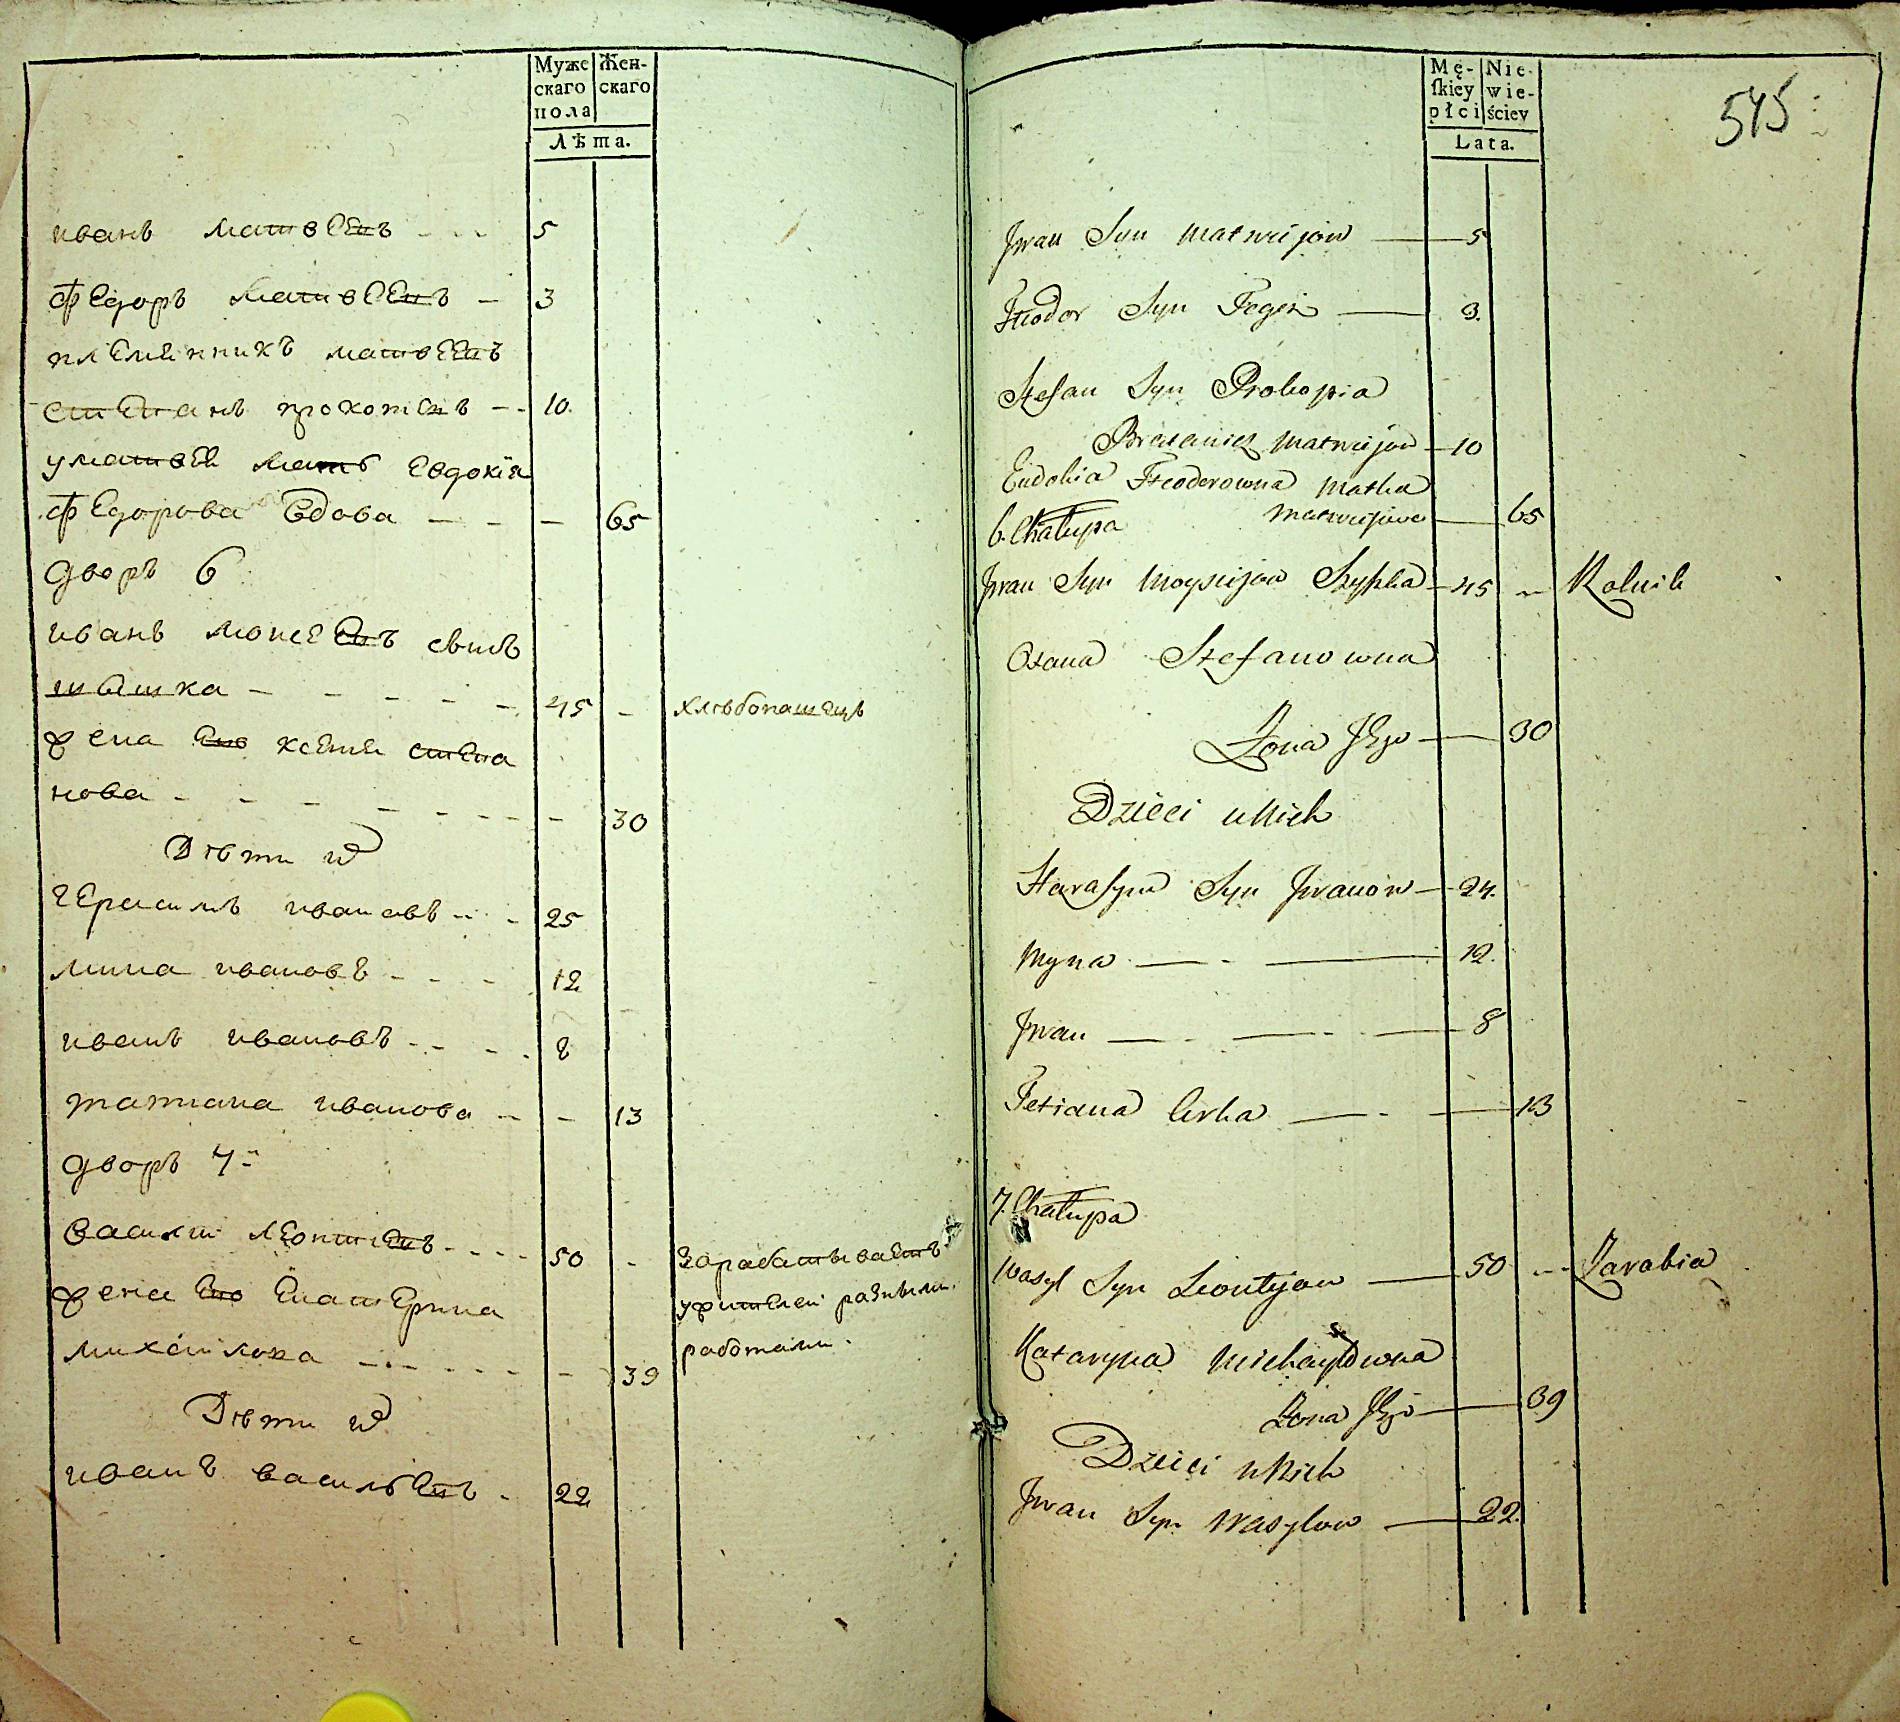 Муже
скаго
пола
Жен-
скаго
Лѣта.
иванъ матвѣевъ - - - 5
Федоръ матвѣевъ - 3
племянникъ матвѣевъ
степанъ прокопевъ - - 10.
у матвѣя мать Евдокія
Федорова вдова - - - 65
дворъ 6
иванъ моисеевъ
- - - - - 45 - хлѣбопашецъ
жена его ксения степа
нова - - - - - - - - 30
Дѣти их
герасимъ ивановъ - - - 25
мина ивановъ - - - 12
иванъ ивановъ - - - - 8
татиана иванова - - - 13
дворъ 7-
василий леонтиевъ - - - - 50 - Зарабатываетъ
жена его Екатерина
у жителей разными
михайлова - - - - - - - 39
работами.
Дѣти их
иванъ васильевъ - 22
Mę-
ſkiey
płci
Nie-
wie-
ściey
Lata.
545
Jwan Syn Matwiijow — 5
Fteodor Syn Tegoż — 3.
Stefan Syn Prokopia
Brataniez Matwiijow — 10
Eudokia Fteodorowna Matka
Matwiijowa — 65
6. Chałupa
Jwan Syn Moysiijow — 45 - Rolnik
Oxana Stefanowna
Żona Jego — 30
Dzieci u Nich
Harasym Syn Jwanow — 24.
Myna — - — 12.
Jwan — - — - — 8
Tetiana Corka — - — 13
7. Chałupa
Wasyl Syn Leontyow — 50 - - Zarabia
Kataryna Michayłowna
Żona Jego — 39
Dzieci u Nich
Jwan Syn Wasylow — 22.